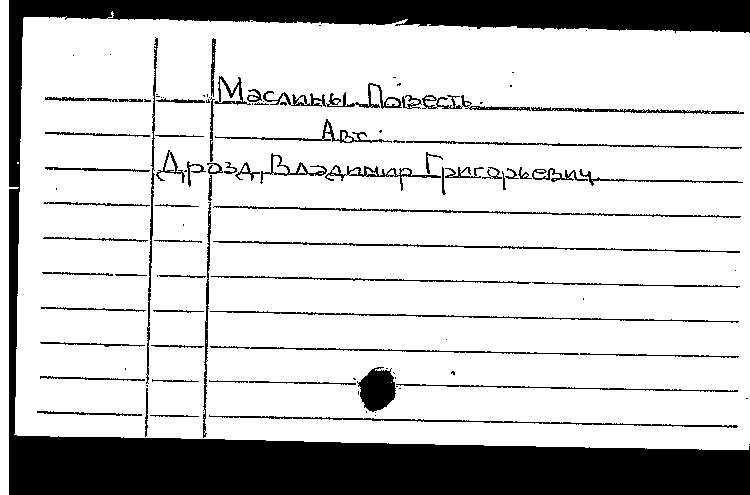 Маслины. Повесть.
Авт.:
Дрозд, Владимир Григорьевич